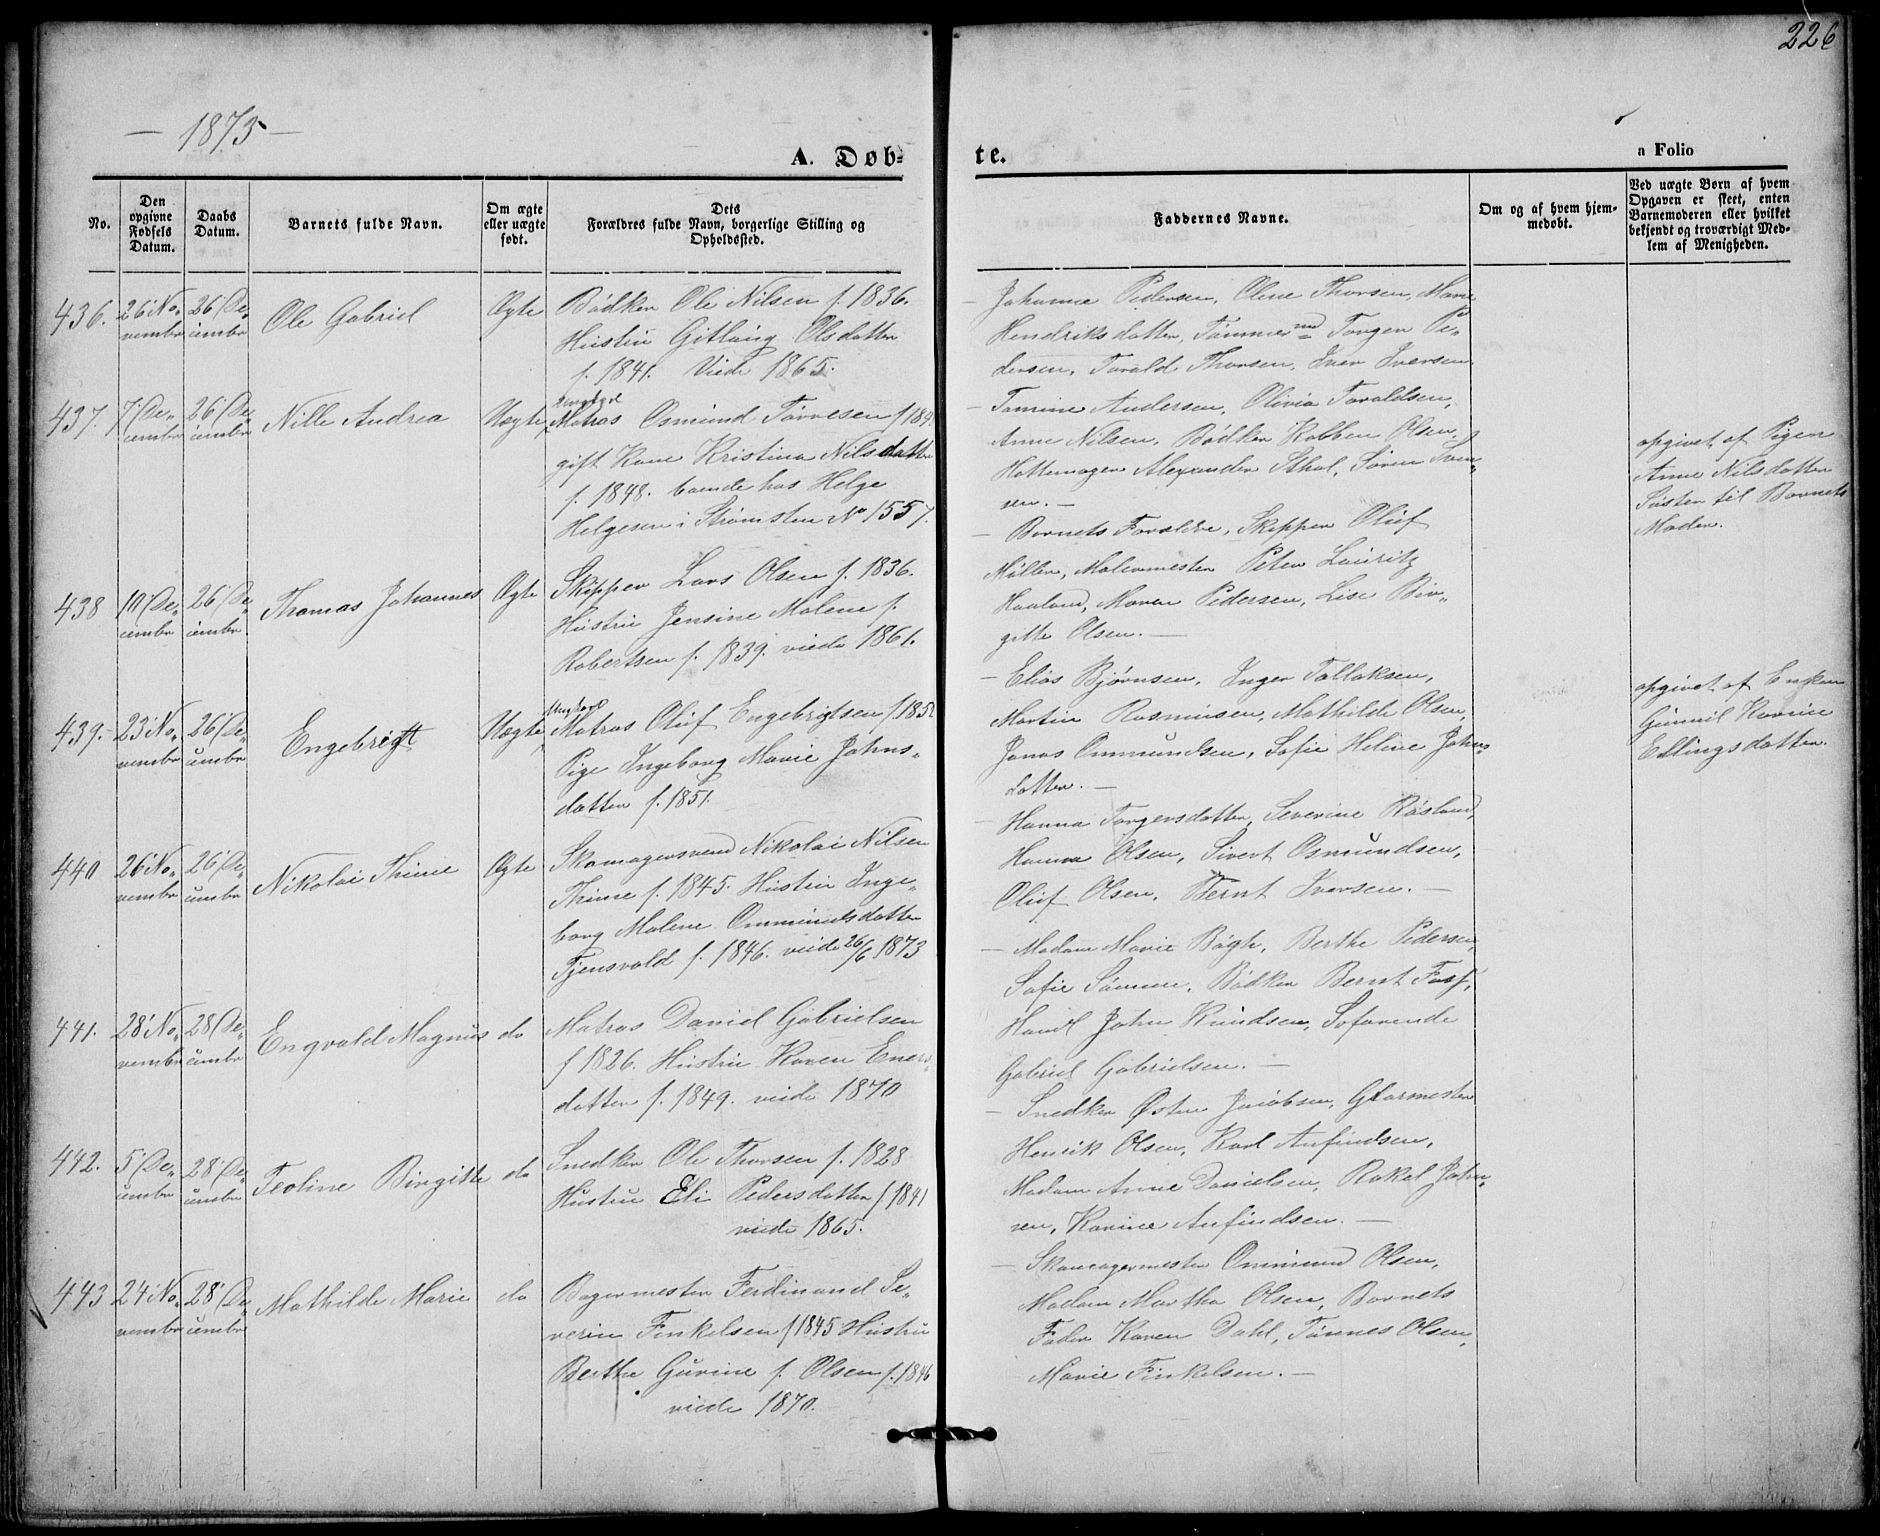 226
— 1873 —
A. Døb-
te.
a Folio
No.
Den opgivne Fødsels Datum.
Daabs Datum.
Barnets fulde Navn.
Om ægte eller uægte født.
Dets Forældres fulde Navn, borgerlige Stilling og Opholdssted.
Faddernes Navne.
Om og af hvem hjem-medøbt.
Ved uægte Børn af hvem Opgaven er skeet, enten Barnemoderen eller hvilket bekjendt og troværdigt Med-lem af Menigheden.
436. 26' No- 26' De- Ole Gabriel Ægte Bødker Ole Nilsen f. 1836.
vember cember Hustru Gitlaug Olsdatter
f. 1841. Viede 1865.
— Johanne Pedersen, Olene Thorsen, Marie
Hendriksdatter, Tømmermd Torger Pe-
dersen, Torald Thorsen, Iver Iversen
437. 7' De- 26' De- Nille Andrea Uægte Ungkarl
cember cember Matros Osmund Tørresen f 184
gift Kone Kristina Nilsdatter
f. 1848. boende hos Helge
Helgesen i Strømsten No 1557.
— Tomine Andersen, Olivia Toraldsen,
Anne Nilsen, Bødker Kobben Olsen,
Hattemager Alexander Sthal, Søren Iver-
sen. —
opgivet af Pigen
Anne Nilsdatter
Søster til Barnets
Moder.
438 10' De- 26' De- Thomas Johannes Ægte Skipper Lars Olsen f. 1836.
cember cember Hustru Jensine Malene f.
Robertsen f. 1839. viede 1861.
— Barnets Forældre, Skipper Oluf
Møller, Malermester Peter Lauritz
Haaland, Maren Pedersen, Lise Bir-
gitte Olsen. —
439. 23' No- 26' De- Engebrigt Uægte Ungkarl
vember cember Matros Oluf Engebrigtsen f 185
Pige Ingeborg Marie Johns-
datter f. 1851.
— Elias Bjørnsen, Inger Tallaksen,
Martin Rasmusen, Mathilde Olsen,
Jonas Ommundsen, Sofie Helene Johns-
datter. —
opgivet af Enken
Gunnil Karine
Ellingsdatter.
440 26' No- 26' De- Nikolai Thime Ægte Skomagersvend Nikolai Nilsen
vember cember Thime f. 1845. Hustru Inge-
borg Malene Ommundsdatter
Tjensvold f. 1846. viede 26/6 1873
— Hanna Torgersdatter, Severine Røsland,
Hanna Olsen, Sivert Osmundsen,
Oluf Olsen, Bernt Iversen. —
441. 28' No- 28' De- Engvald Magnus do Matros Daniel Gabrielsen
vember cember f 1826. Hustru Karen Eners-
datter f. 1849. viede 1870
— Madam Marie Bøgh, Berthe Pedersen,
Sofie Sømme, Bødker Bernt Foss,
Handl John Knudsen, Søfarende
Gabriel Gabrielsen. —
442. 5' De- 28' De- Teoline Birgitte do Snedker Ole Thorsen f. 1828
cember cember Hustru Eli Pedersdatter f. 1841
viede 1865.
— Snedker Østen Jacobsen, Glarmester
Henrik Olsen, Karl Anfindsen,
Madam Anne Danielsen, Rakel John-
sen, Karine Anfindsen. —
443 24' No- 28' De- Mathilde Marie do Bagermester Ferdinand Se-
vember cember verin Finkelsen f 1845 Hustru
Berthe Gurine f. Olsen f. 1846
viede 1870.
— Skomagermester Ommund Olsen,
Madam Martha Olsen, Barnets
Fader Karen Dahl, Tønnes Olsen,
Marie Finkelsen. —